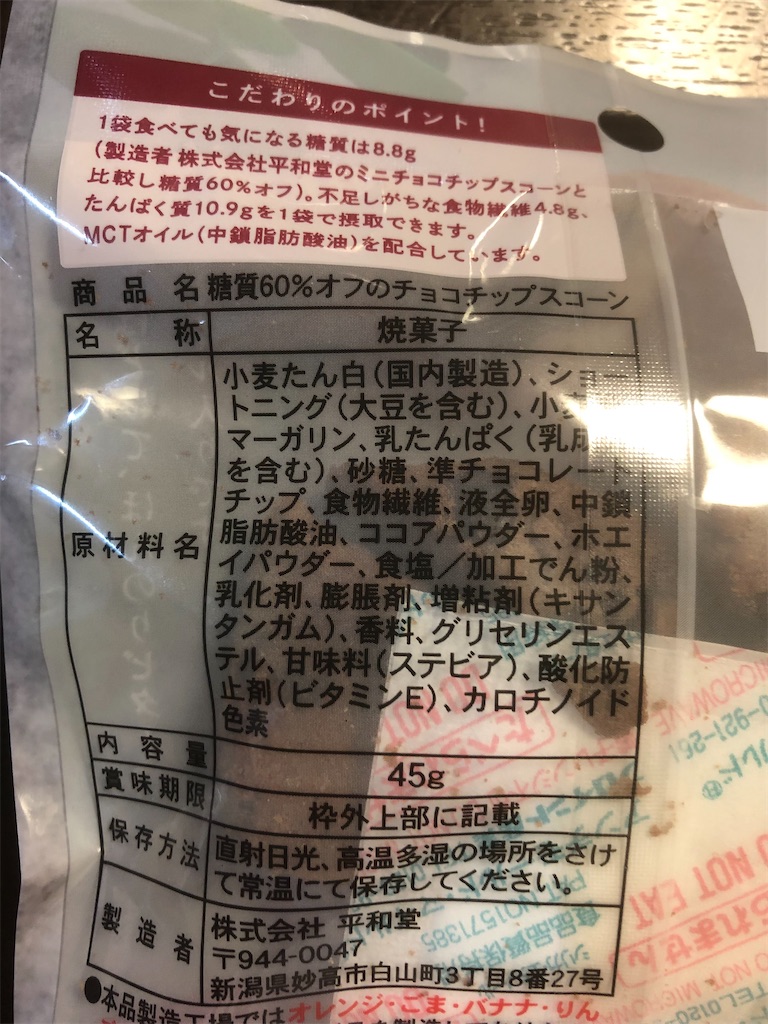 こだわりのポイント!
1袋食べても気になる糖質は8.8g
(製造者 株式会社平和堂のミニチョコチップスコーンと
比較し糖質60%オフ)。不足しがちな食物繊維4.8g、
たんぱく質10.9gを1袋で摂取できます。
MCTオイル(中鎖脂肪酸油)を配合しています。
商品名 糖質60%オフのチョコチップスコーン
名称 焼菓子
原材料名
小麦たん白(国内製造)、ショー
トニング(大豆を含む)、小麦
マーガリン、乳たんぱく(乳成
を含む)、砂糖、準チョコレート
チップ、食物繊維、液全卵、中鎖
脂肪酸油、ココアパウダー、ホエ
イパウダー、食塩/加工でん粉、
乳化剤、膨脹剤、増粘剤(キサン
タンガム)、香料、グリセリンエス
テル、甘味料(ステビア)、酸化防
止剤(ビタミンE)、カロチノイド
色素
内容量 45g
賞味期限 枠外上部に記載
保存方法 直射日光、高温多湿の場所をさけ
て常温にて保存してください。
製造者 株式会社 平和堂
〒944-0047
新潟県妙高市白山町3丁目8番27号
●本品製造工場ではオレンジ・ごま・バナナ・りん
DO NOT EAT
られません